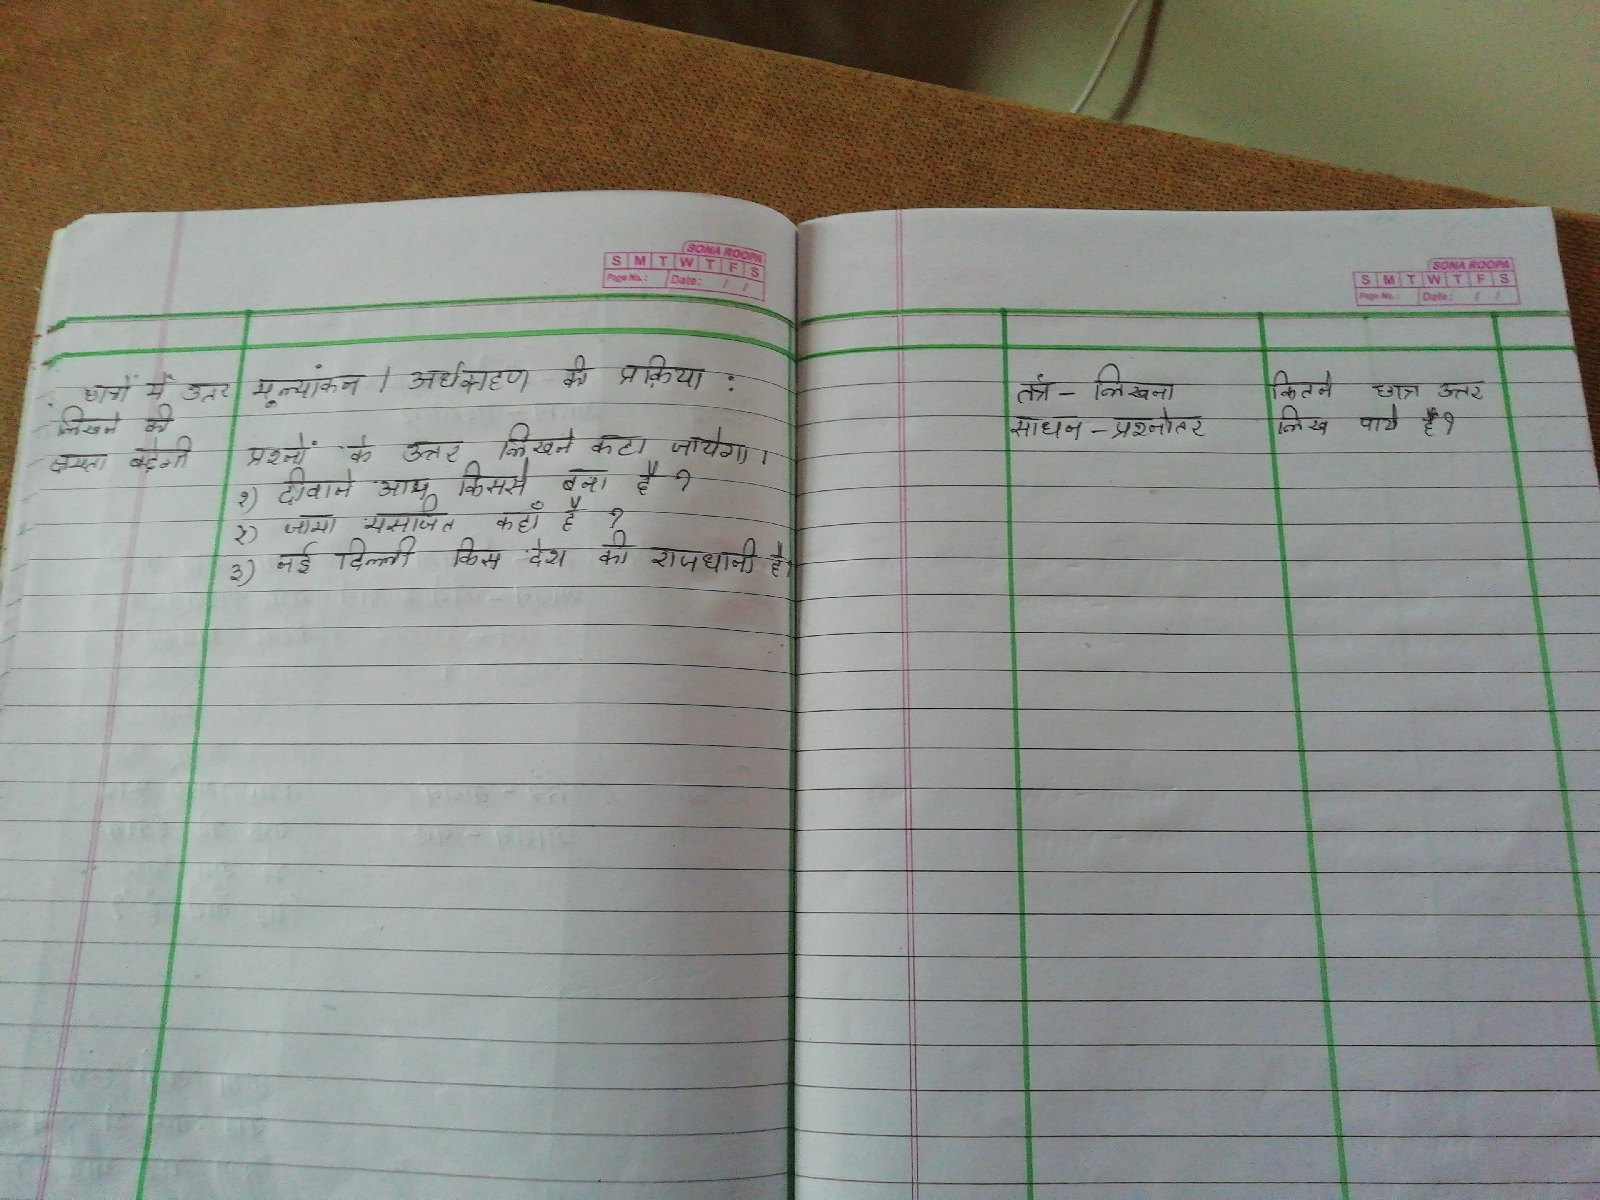 SONA ROOPA
S M T W T F S
Page No.: Date: / /
छात्रों में उतर
लिखने की
क्षमता बढ़ेगी
मूल्यांकन / अर्थग्रहण की प्रक्रिया :
प्रश्नों के उत्तर लिखने कहा जायेगा।
१) दीवाने आम किससे बना है ?
२) जामा मसजित कहाँ है ?
३) नई दिल्ली किस देश की राजधानी है।
SONA ROOPA
S M T W T F S
Page No.: Date: / /
तंत्र - लिखना
साधन - प्रश्नोतर
कितने छात्र उत्तर
लिख पाये हैं?